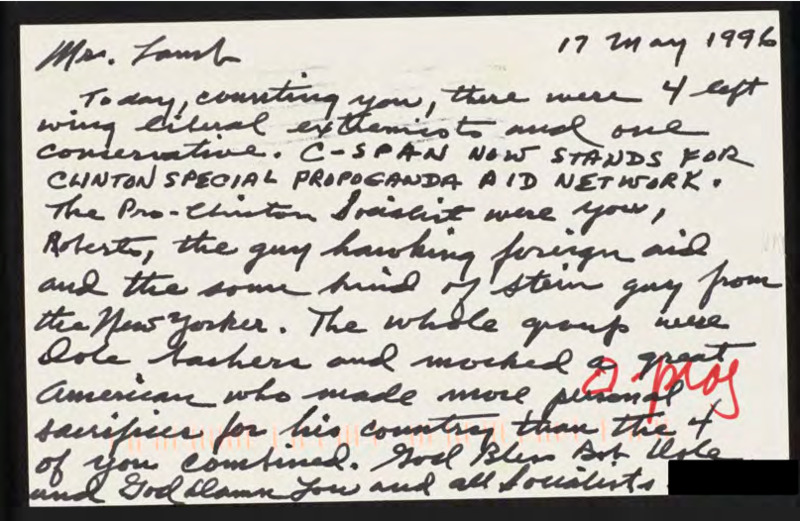 Mr. Lamb 17 May 1996
Today, counting you, there were 4 left
wing liberal extremists and one
conservative. C-SPAN NOW STANDS FOR
CLINTON SPECIAL PROPOGANDA AID NETWORK.
The Pro-Clinton Socialist were you,
Roberts, the guy hawking foreign aid
and the some kind of stein guy from
the New Yorker. The whole group were
Dole bashers and mocked a great
American who made more personal
sacrifices for his country than the 4
of you combined. God Bless Bob Dole
and God Damn You and all Socialists